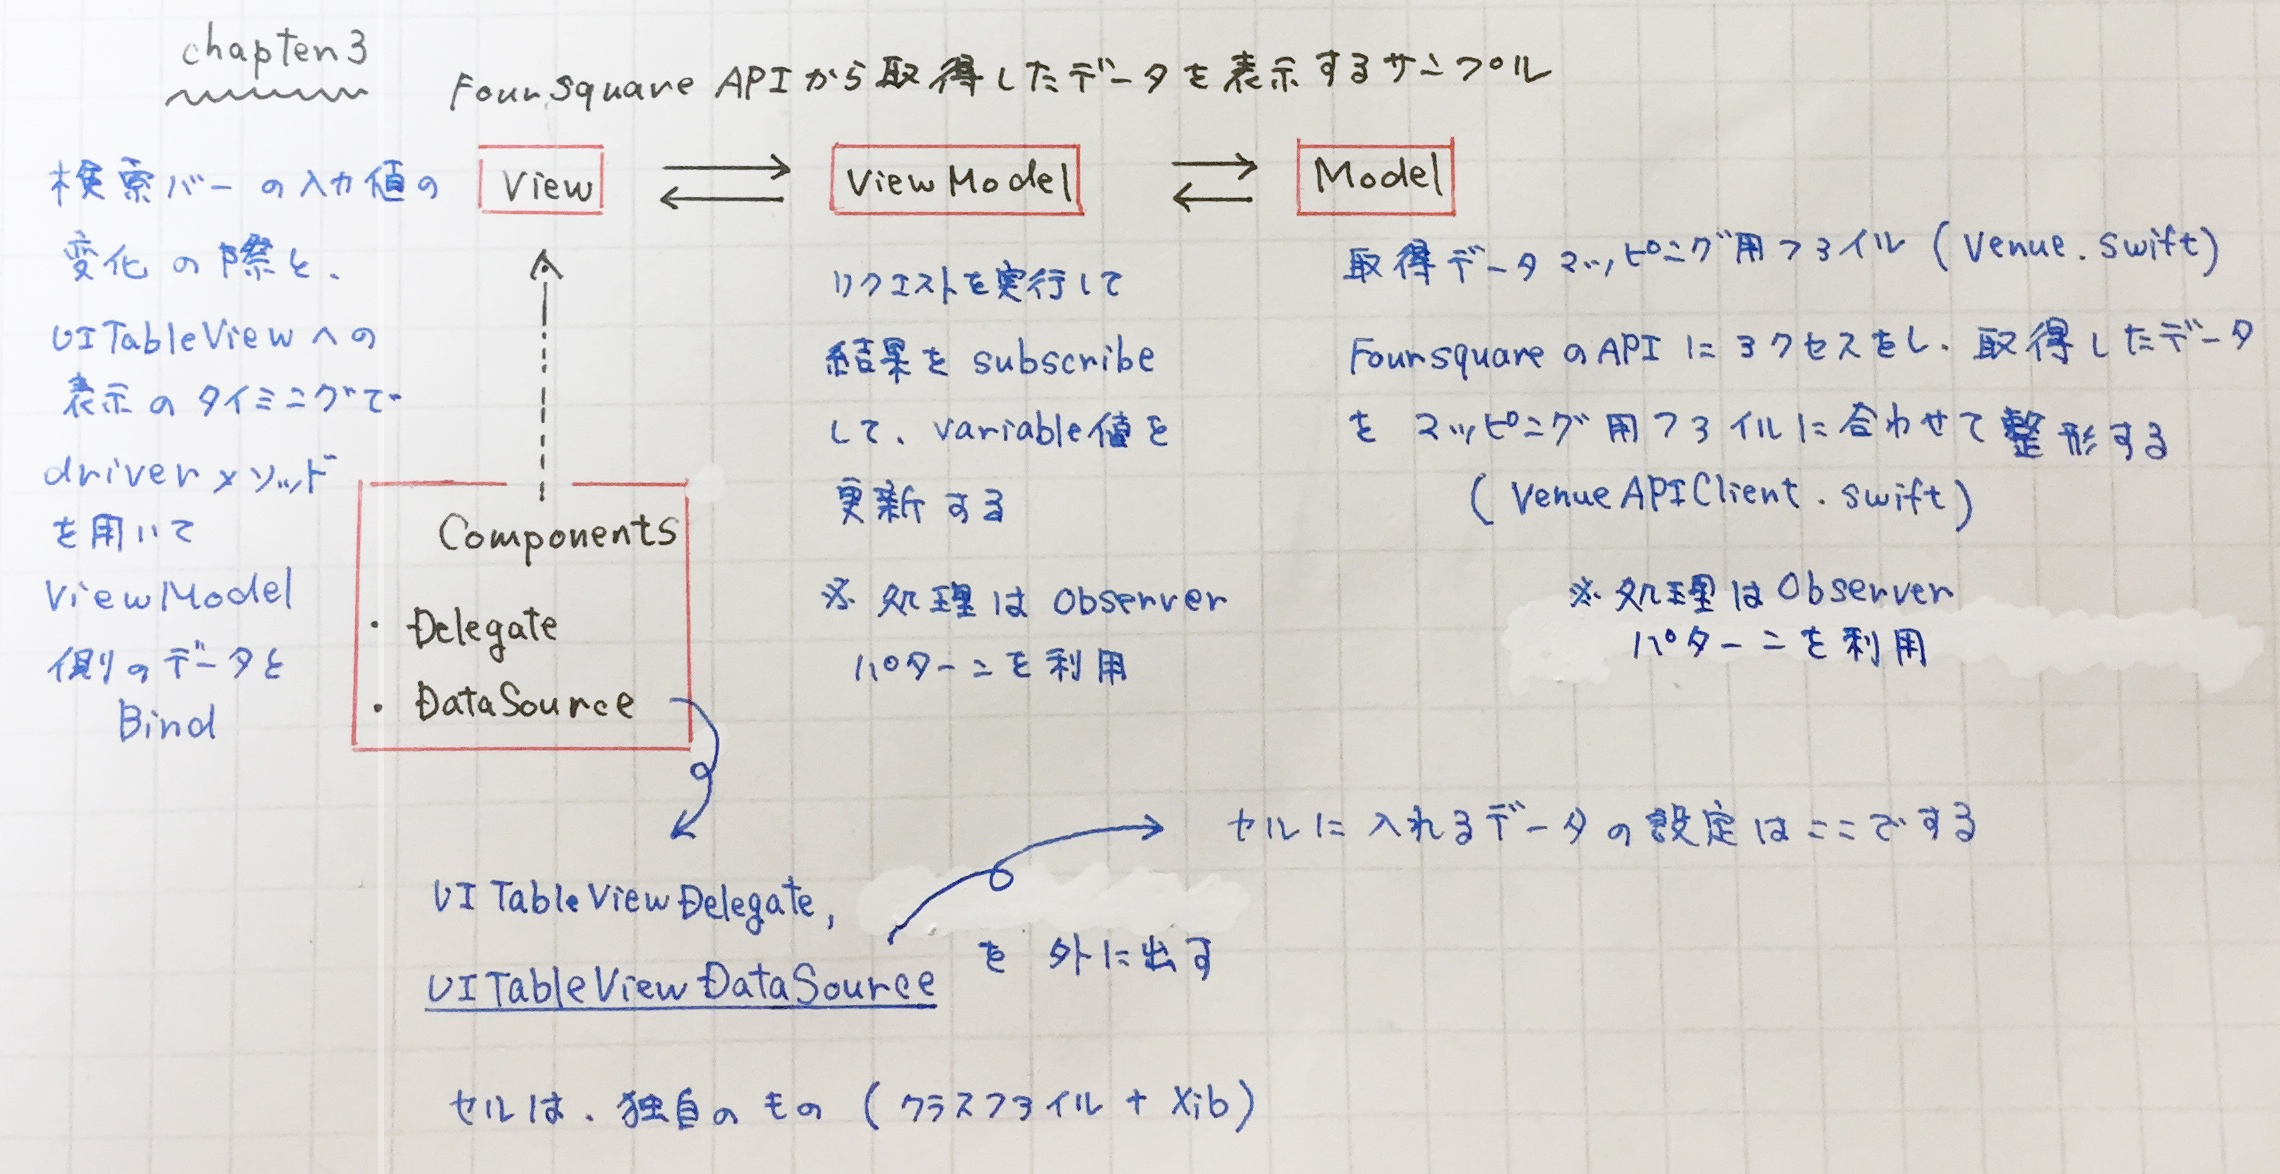 chapter3
Foursquare APIから取得したデータを表示するサンプル
View
ViewModel
Model
検索バーの入力値の
変化の際と、
UITableViewへの
表示のタイミングで
driverメソッド
を用いて
ViewModel
側のデータと
Bind
Components
・Delegate
・DataSource
リクエストを実行して
結果をsubscribe
して、variable値を
更新する
※処理はObserver
パターンを利用
取得データマッピング用ファイル(Venue.swift)
FoursquareのAPIにアクセスをし、取得したデータ
をマッピング用ファイルに合わせて整形する
(VenueAPIClient.swift)
※処理はObserver
パターンを利用
セルに入れるデータの設定はここでする
UITableViewDelegate,
UITableViewDataSource
を外に出す
セルは、独自のもの(クラスファイル+Xib)